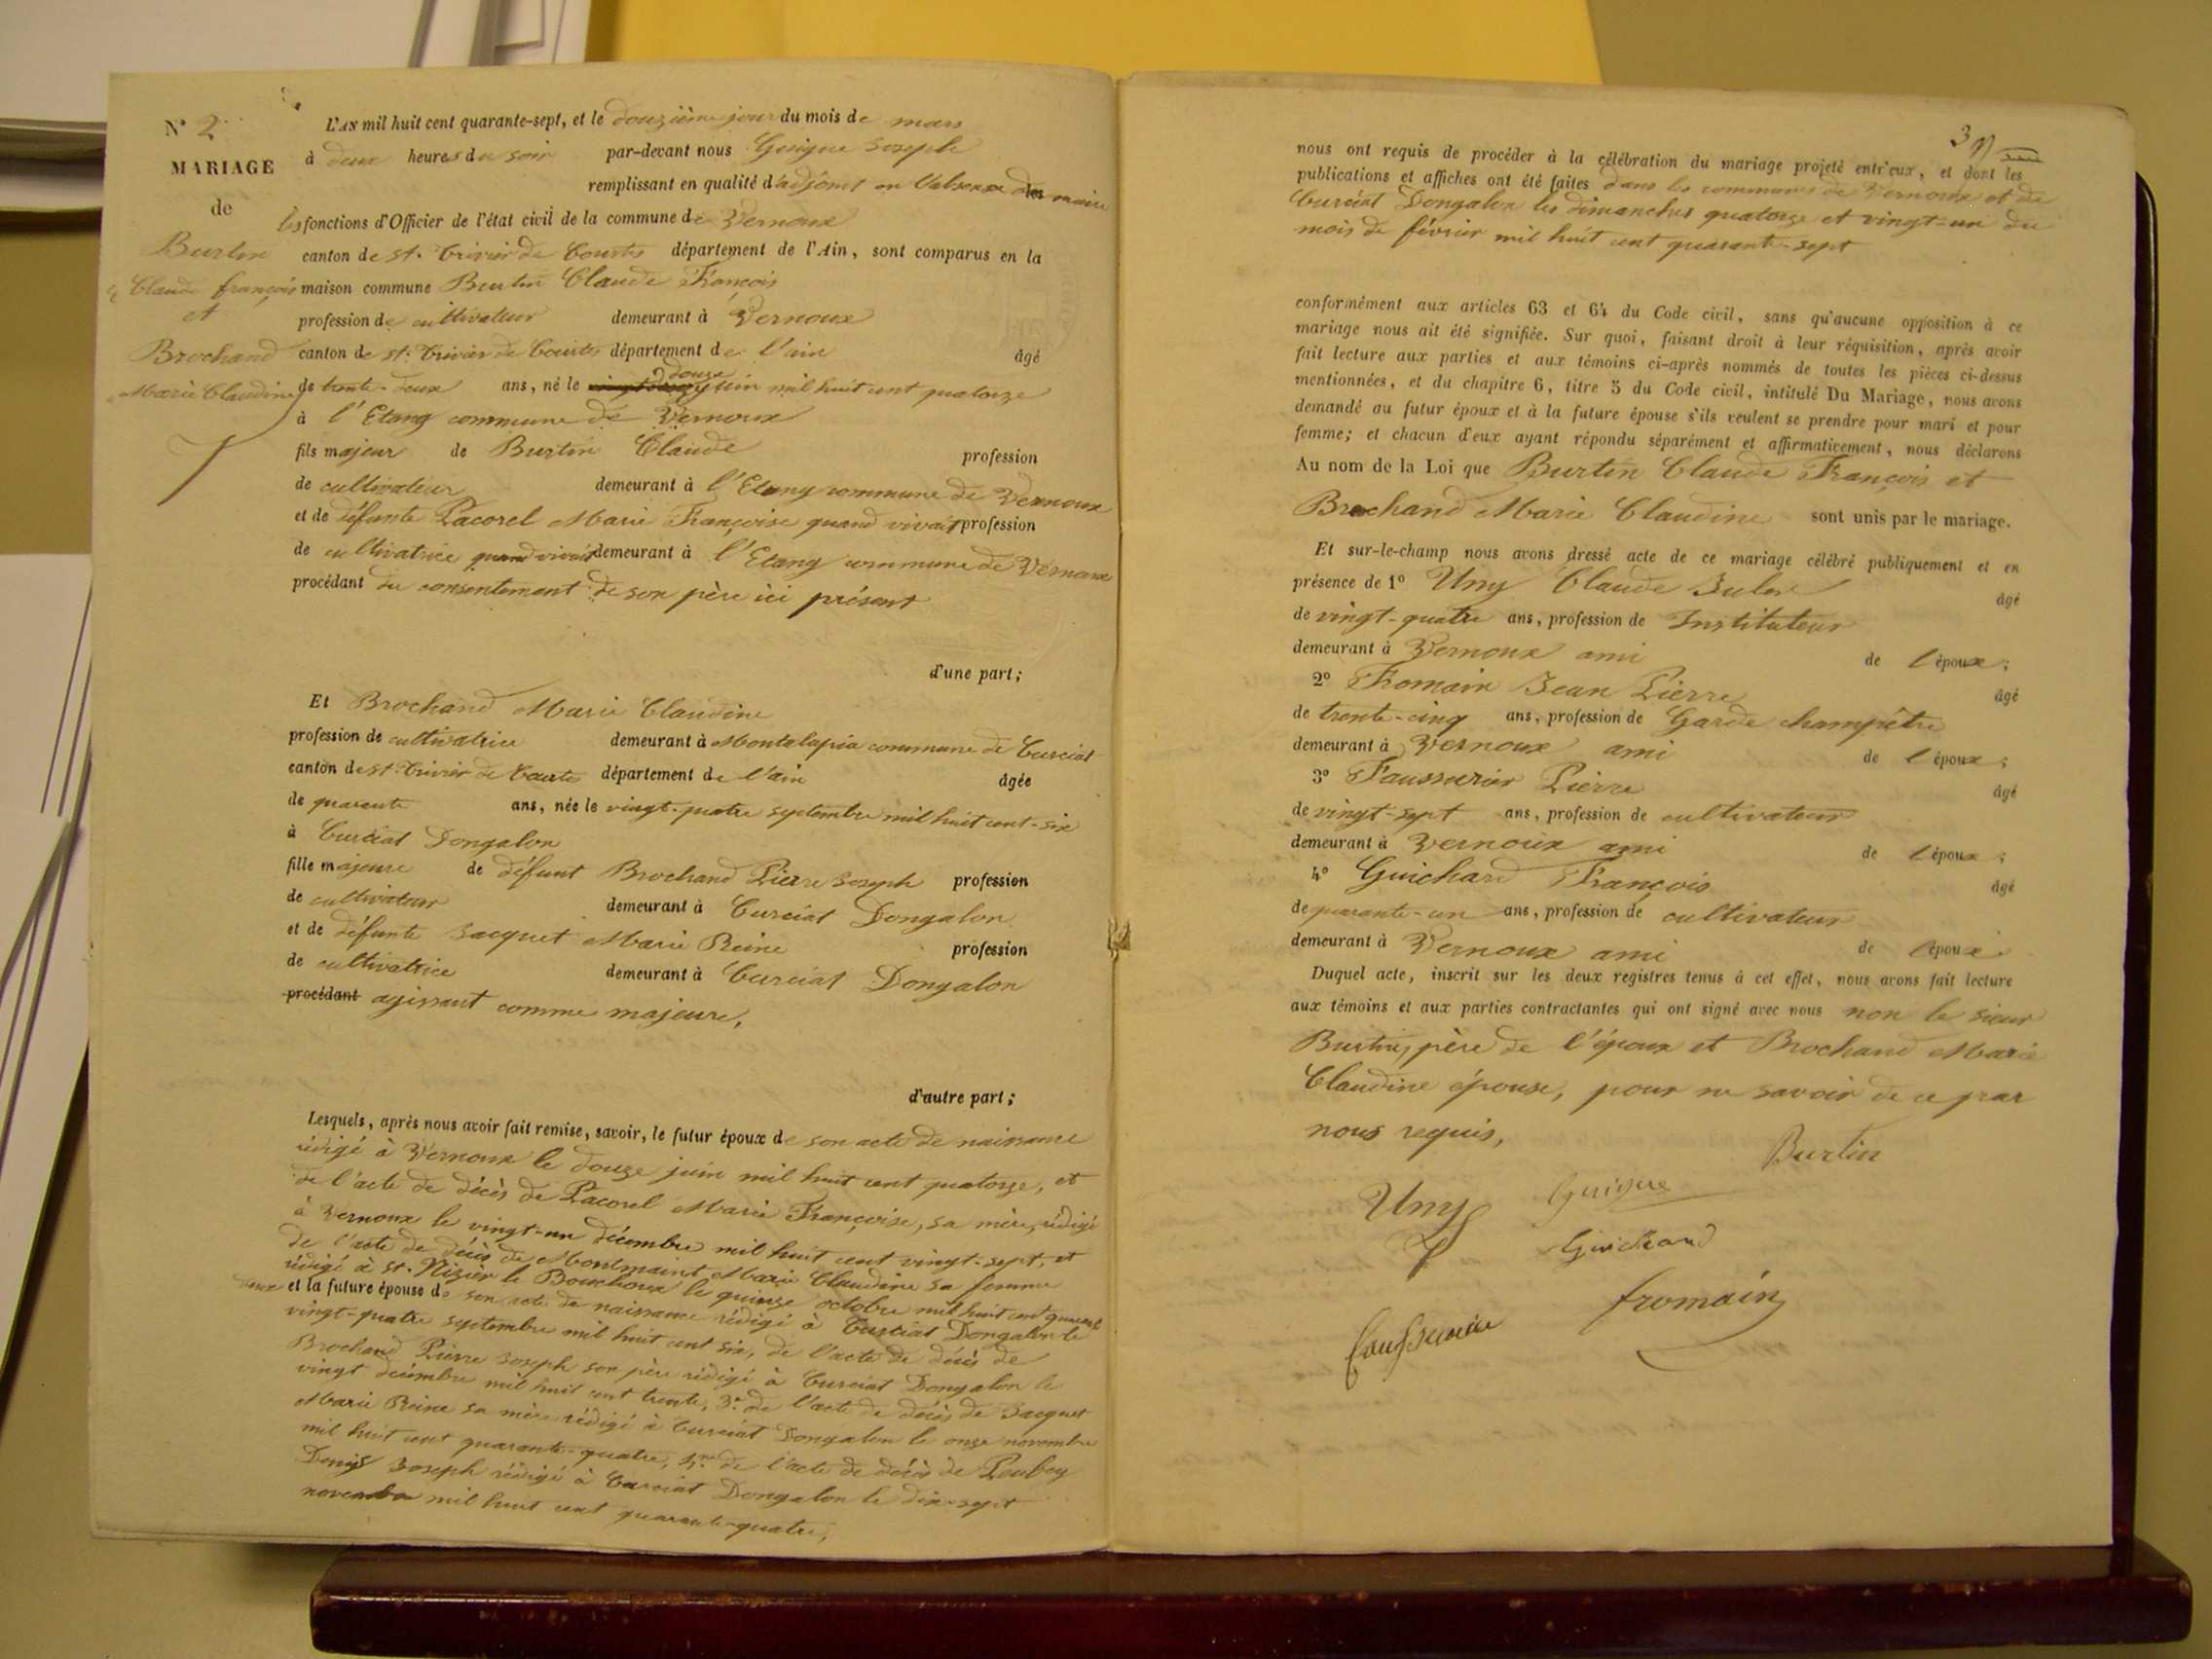 N° 2
MARIAGE
de
Burtin
Claude françois
et
Brochand
Marie Claudine
L'AN mil huit cent quarante-sept, et le douzième jour du mois de mars
à deux heures du soir par-devant nous Guigue Joseph
remplissant en qualité d'adjoint en l'absence du maire
les fonctions d'Officier de l'état civil de la commune de Vernoux
canton de St. Trivier de Courtes département de l'Ain, sont comparus en la
maison commune Burtin Claude François
profession de cultivateur demeurant à Vernoux
canton de St. Trivier de Courtes département de l'ain âgé
de trente-deux ans, né le douze juin mil huit cent quatorze
à l'Etang commune de Vernoux
fils majeur de Burtin Claude profession
de cultivateur demeurant à l'Etang commune de Vernoux
et de défunte Pacorel Marie Françoise quand vivait profession
de cultivatrice quand vivait demeurant à l'Etang commune de Vernoux
procédant du consentement de son père ici présent
d'une part;
Et Brochand Marie Claudine
profession de cultivatrice demeurant à Montalapia commune de Curciat
canton de St. Trivier de Courtes département de l'ain âgée
de quarante ans, née le vingt-quatre septembre mil huit cent-six
à Curciat Dongalon
fille majeure de défunt Brochand Pierre Joseph profession
de cultivateur demeurant à Curciat Dongalon
et de défunte Jacquet Marie Reine profession
de cultivatrice demeurant à Curciat Dongalon
procédant agissant comme majeure,
d'autre part;
Lesquels, après nous avoir fait remise, savoir, le futur époux de son acte de naissance
rédigé à Vernoux le douze juin mil huit cent quatorze, et
de l'acte de décès de Pacorel Marie Françoise, sa mère, rédigé
à Vernoux le vingt-un décembre mil huit cent vingt-sept, et
de l'acte de décès de Montmaint Marie Claudine sa femme
rédigé à St. Nizier le Bouchoux le quinze octobre mil huit cent quarante
deux et la future épouse de son acte de naissance rédigé à Curciat Dongalon le
vingt-quatre septembre mil huit cent six, de l'acte de décès de
Brochand Pierre Joseph son père rédigé à Curciat Dongalon le
vingt décembre mil huit cent trente, 3.° de l'acte de décès de Jacquet
Marie Reine sa mère rédigé à Curciat Dongalon le onze novembre
mil huit cent quarante-quatre, de l'acte de décès de Poubey
Denys Joseph rédigé à Curciat Dongalon le dix-sept
novembre mil huit cent quarante-quatre,
3
nous ont requis de procéder à la célébration du mariage projeté entr'eux, et dont les
publications et affiches ont été faites dans les communes de Vernoux et de
Curciat Dongalon les dimanches quatorze et vingt-un du
mois de février mil huit cent quarante-sept
conformément aux articles 63 et 64 du Code civil, sans qu'aucune opposition à ce
mariage nous ait été signifiée. Sur quoi, faisant droit à leur réquisition, après avoir
fait lecture aux parties et aux témoins ci-après nommés de toutes les pièces ci-dessus
mentionnées, et du chapitre 6, titre 5 du Code civil, intitulé Du Mariage, nous avons
demandé au futur époux et à la future épouse s'ils veulent se prendre pour mari et pour
femme; et chacun d'eux ayant répondu séparément et affirmativement, nous déclarons
Au nom de la Loi que Burtin Claude François et
Brochand Marie Claudine sont unis par le mariage.
Et sur-le-champ nous avons dressé acte de ce mariage célébré publiquement et en
présence de 1° Uny Claude Jules âgé
de vingt-quatre ans, profession de Instituteur
demeurant à Vernoux ami de l'époux;
2° Fromain Jean Pierre âgé
de trente-cinq ans, profession de Garde champêtre
demeurant à Vernoux ami de l'époux;
3° Faussurier Pierre âgé
de vingt-sept ans, profession de cultivateur
demeurant à Vernoux ami de l'époux;
4° Guichard François âgé
de quarante-un ans, profession de cultivateur
demeurant à Vernoux ami de l'époux
Duquel acte, inscrit sur les deux registres tenus à cet effet, nous avons fait lecture
aux témoins et aux parties contractantes qui ont signé avec nous non le sieur
Burtin, père de l'époux et Brochand Marie
Claudine épouse, pour ne savoir de ce par
nous requis,
Burtin
Uny
Guigue
Guichard
fromain
faussurier